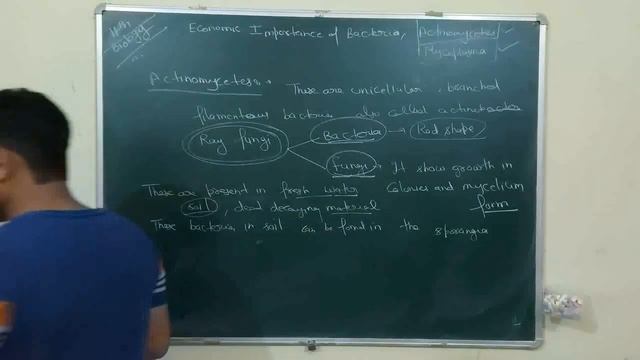 11th
Biology
Economic Importance of Bacteria, Actinomycetes
Mycoplasma
Actinomycetes :
These are unicellular, branched
filamentous bacteria also called
Ray fungi
Bacteria → Rod shape
Fungi → It show growth in
Colonies and mycelium
form
These are present in fresh water
soil, dead decaying material
These bacteria in soil can be found in the sporangia